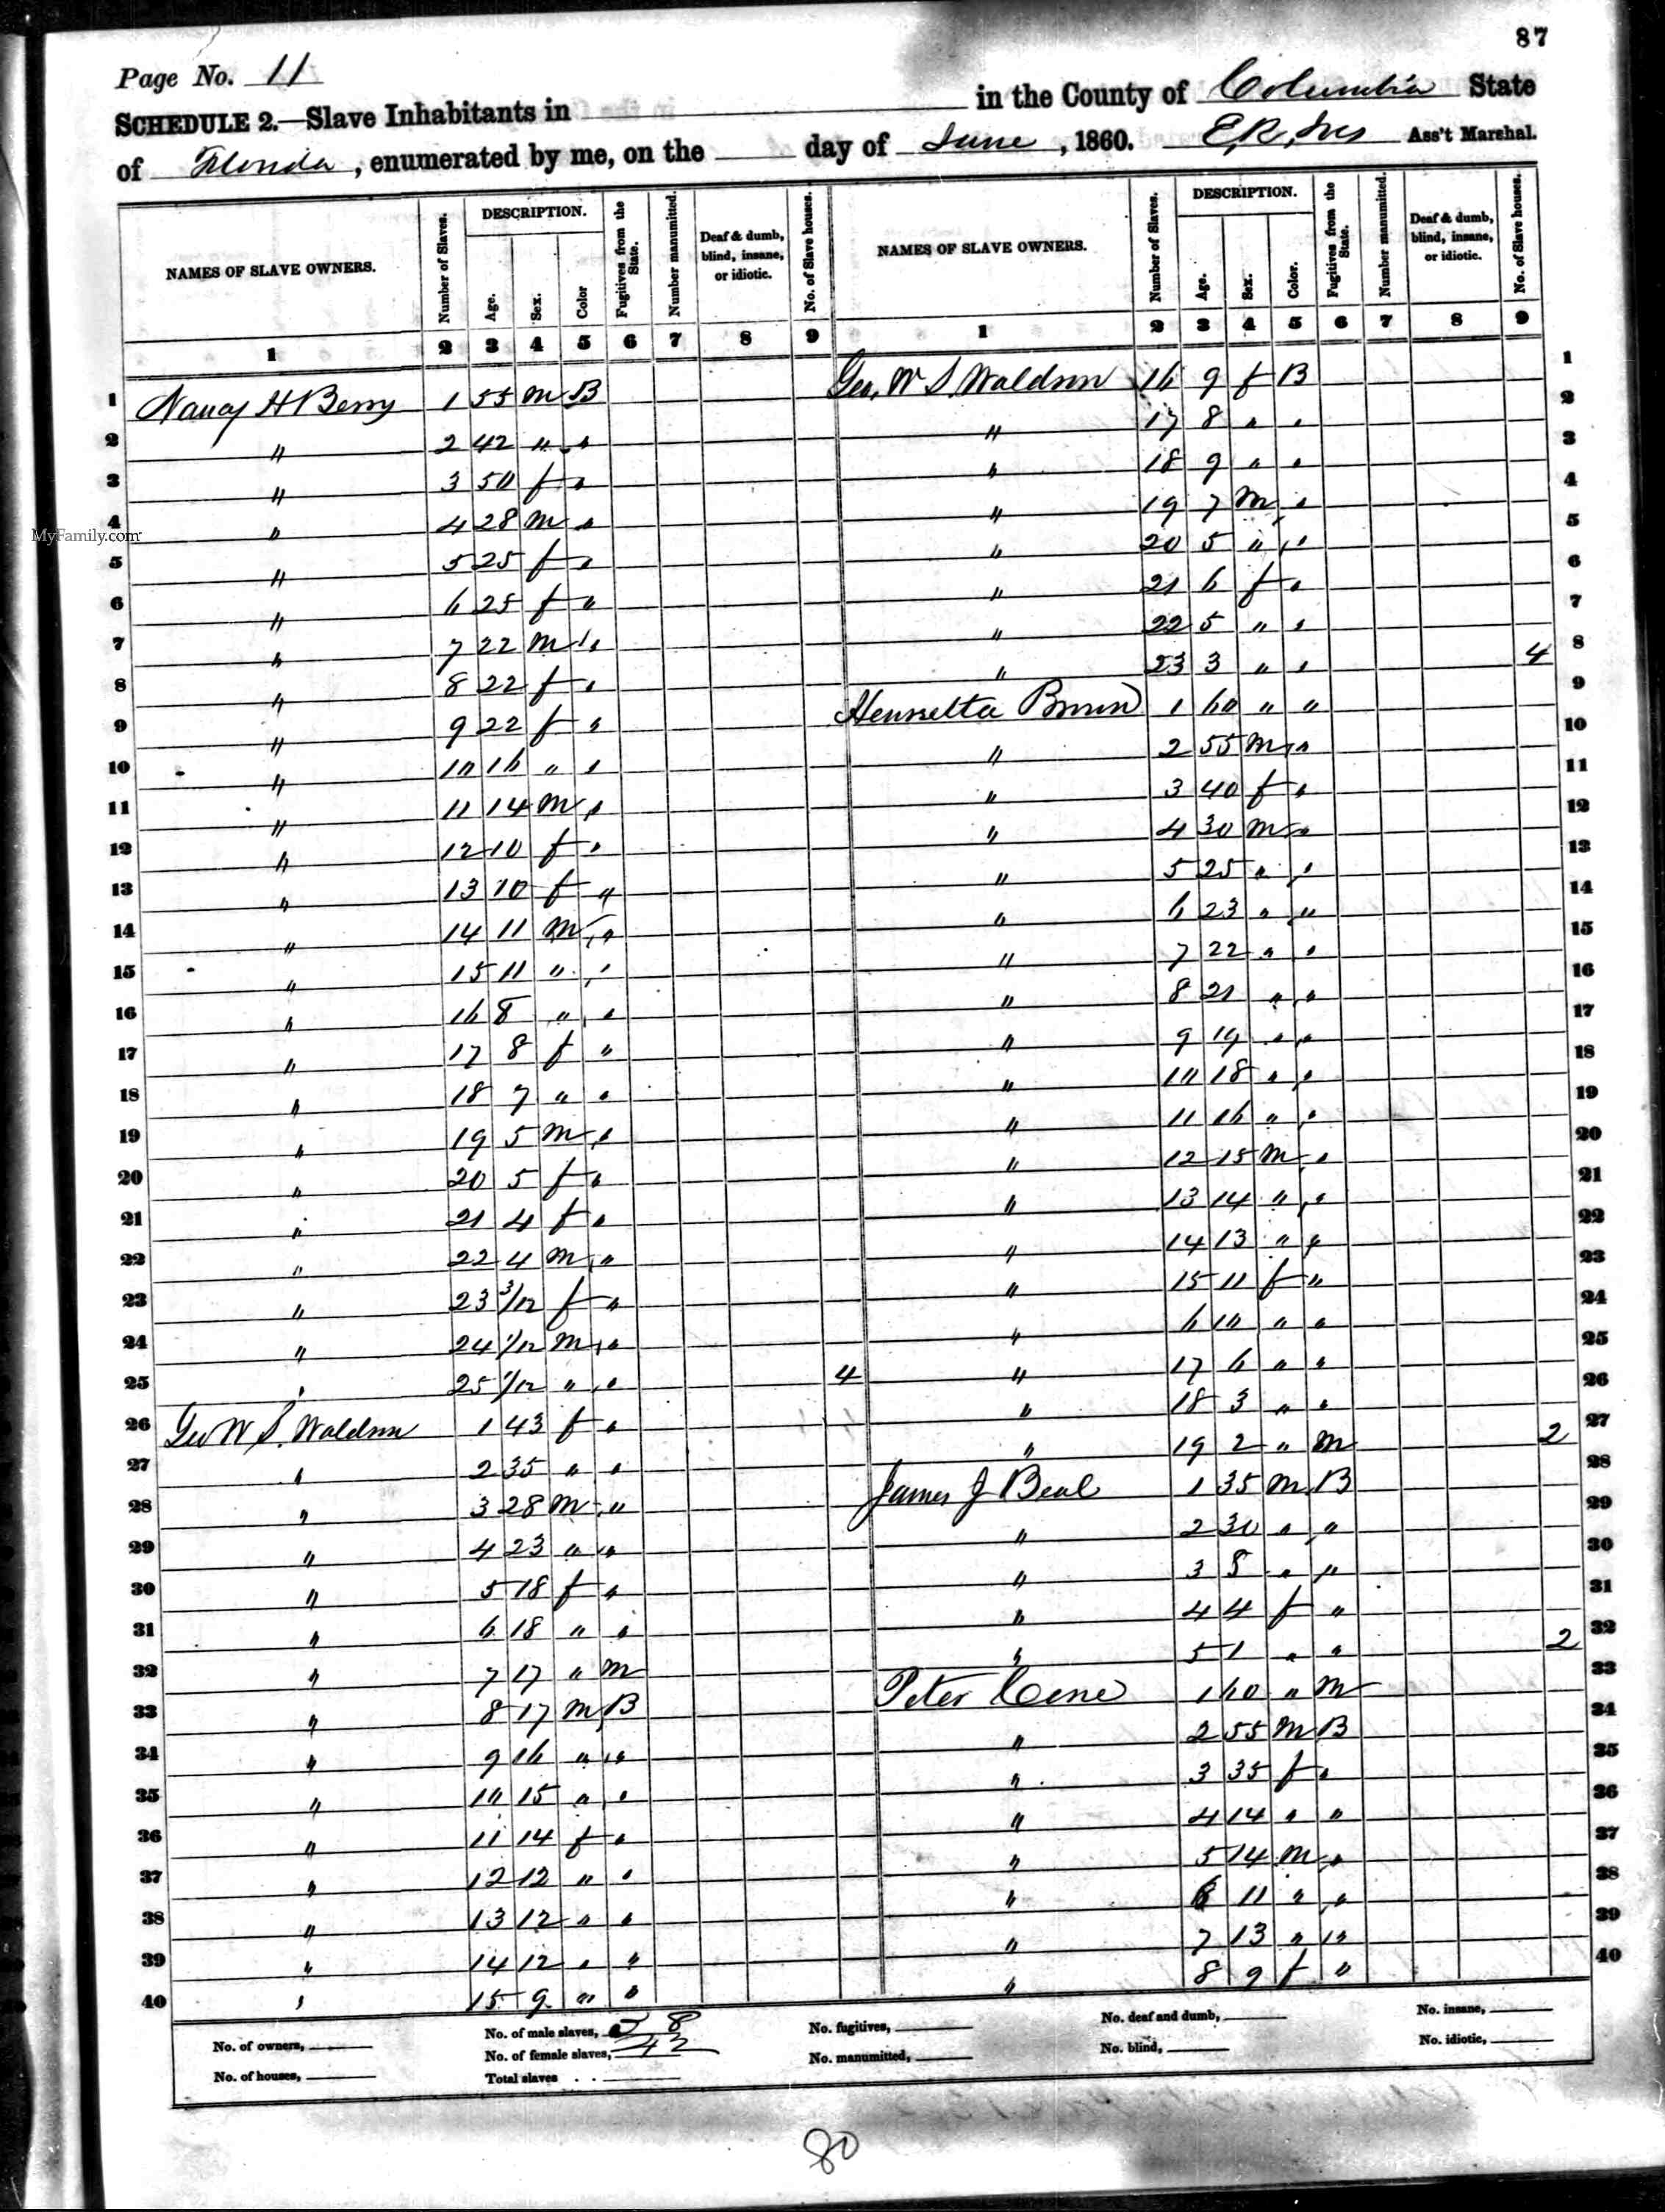 87
Page No. 11
SCHEDULE 2.—Slave Inhabitants in in the County of Columbia State
of Florida, enumerated by me, on the day of June, 1860. E. R. Ives Ass't Marshal.
NAMES OF SLAVE OWNERS. Number of Slaves. DESCRIPTION. Age. Sex. Color Fugitives from the State. Number manumitted. Deaf & dumb, blind, insane, or idiotic. No. of Slave houses.
1 2 3 4 5 6 7 8 9
1 Nancy H Berry 1 55 m B
2 " 2 42 " "
3 " 3 50 f "
4 " 4 28 m "
MyFamily.com
5 " 5 25 f "
6 " 6 25 f "
7 " 7 22 m "
8 " 8 22 f "
9 " 9 22 f "
10 " 10 16 " "
11 " 11 14 m "
12 " 12 10 f "
13 " 13 10 f "
14 " 14 11 m "
15 " 15 11 " "
16 " 16 8 " "
17 " 17 8 f "
18 " 18 7 " "
19 " 19 5 m "
20 " 20 5 f "
21 " 21 4 f "
22 " 22 4 m "
23 " 23 3/12 f "
24 " 24 1/12 m "
25 " 25 1/12 " " 4
26 Geo W S. Waldron 1 43 f "
27 " 2 35 " "
28 " 3 28 m "
29 " 4 23 " "
30 " 5 18 f "
31 " 6 18 " "
32 " 7 17 " m
33 " 8 17 m B
34 " 9 16 " "
35 " 10 15 " "
36 " 11 14 f "
37 " 12 12 " "
38 " 13 12 " "
39 " 14 12 " "
40 " 15 9 " "
NAMES OF SLAVE OWNERS. Number of Slaves. DESCRIPTION. Age. Sex. Color. Fugitives from the State. Number manumitted. Deaf & dumb, blind, insane, or idiotic. No. of Slave houses.
1 2 3 4 5 6 7 8 9
Geo. W S. Waldron 16 9 f B 1
" 17 8 " " 2
" 18 9 " " 3
" 19 7 m " 4
" 20 5 " " 5
" 21 6 f " 6
" 22 5 " " 7
" 23 3 " " 4 8
Henrietta Brown 1 60 " " 9
" 2 55 m " 10
" 3 40 f " 11
" 4 30 m " 12
" 5 25 " " 13
" 6 23 " " 14
" 7 22 " " 15
" 8 21 " " 16
" 9 19 " " 17
" 10 18 " " 18
" 11 16 " " 19
" 12 15 m " 20
" 13 14 " " 21
" 14 13 " " 22
" 15 11 f " 23
" 6 10 " " 24
" 17 6 " " 25
" 18 3 " " 26
" 19 2 " m 2 27
James J Beal 1 35 m B 28
" 2 30 " " 29
" 3 8 " " 30
" 4 4 f " 31
" 5 1 " " 2 32
Peter Cone 1 60 " m 33
" 2 55 m B 34
" 3 35 f " 35
" 4 14 " " 36
" 5 14 m " 37
" 6 11 " " 38
" 7 13 " " 39
" 8 9 f " 40
No. of owners, No. of male slaves, 38 No. fugitives, No. deaf and dumb, No. insane,
No. of houses, No. of female slaves, 42 No. manumitted, No. blind, No. idiotic,
Total slaves
80